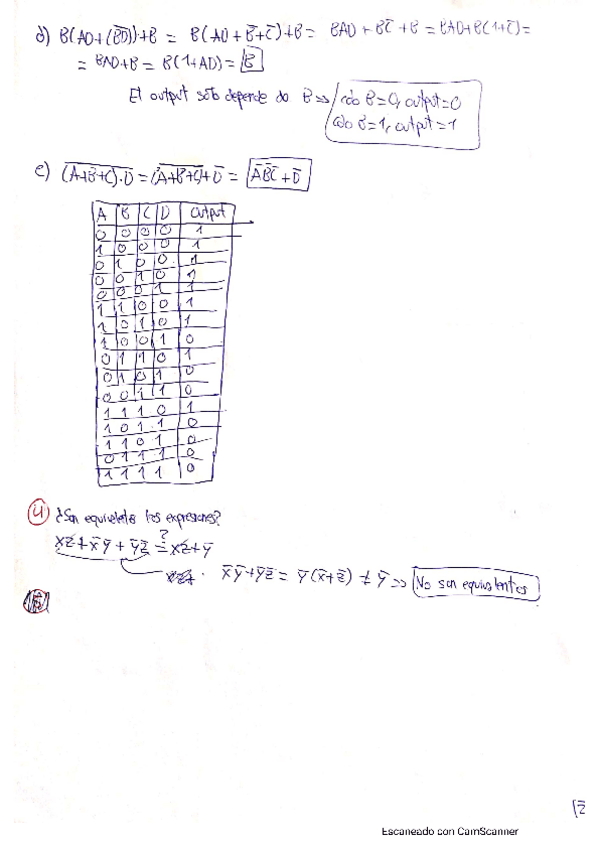 d) B(AD+(B̅D̅))+B = B(AD+B̅+C̅)+B = BAD+BC̅+B = BAD+B(1+C̅)=
= BAD+B = B(1+AD) = B
El output sólo depende de B => cdo B=0, output=0
cdo B=1, output=1
e) (A+B+C)·D̅ = (A+B+C)+D̅ = A̅B̅C̅+D̅
A B C D output
0 0 0 0 1
1 0 0 0 1
0 1 0 0 1
0 0 1 0 1
0 0 0 1 1
1 1 0 0 1
1 0 1 0 1
1 0 0 1 0
0 1 1 0 1
0 1 0 1 0
0 0 1 1 0
1 1 1 0 1
1 0 1 1 0
1 1 0 1 0
0 1 1 1 0
1 1 1 1 0
4 ¿Son equivalentes las expresiones?
xz+x̅y̅+y̅z̅ ?= xz+y̅
x̅y̅+y̅z̅ = y̅(x̅+z̅) ≠ y̅ => No son equivalentes
Escaneado con CamScanner